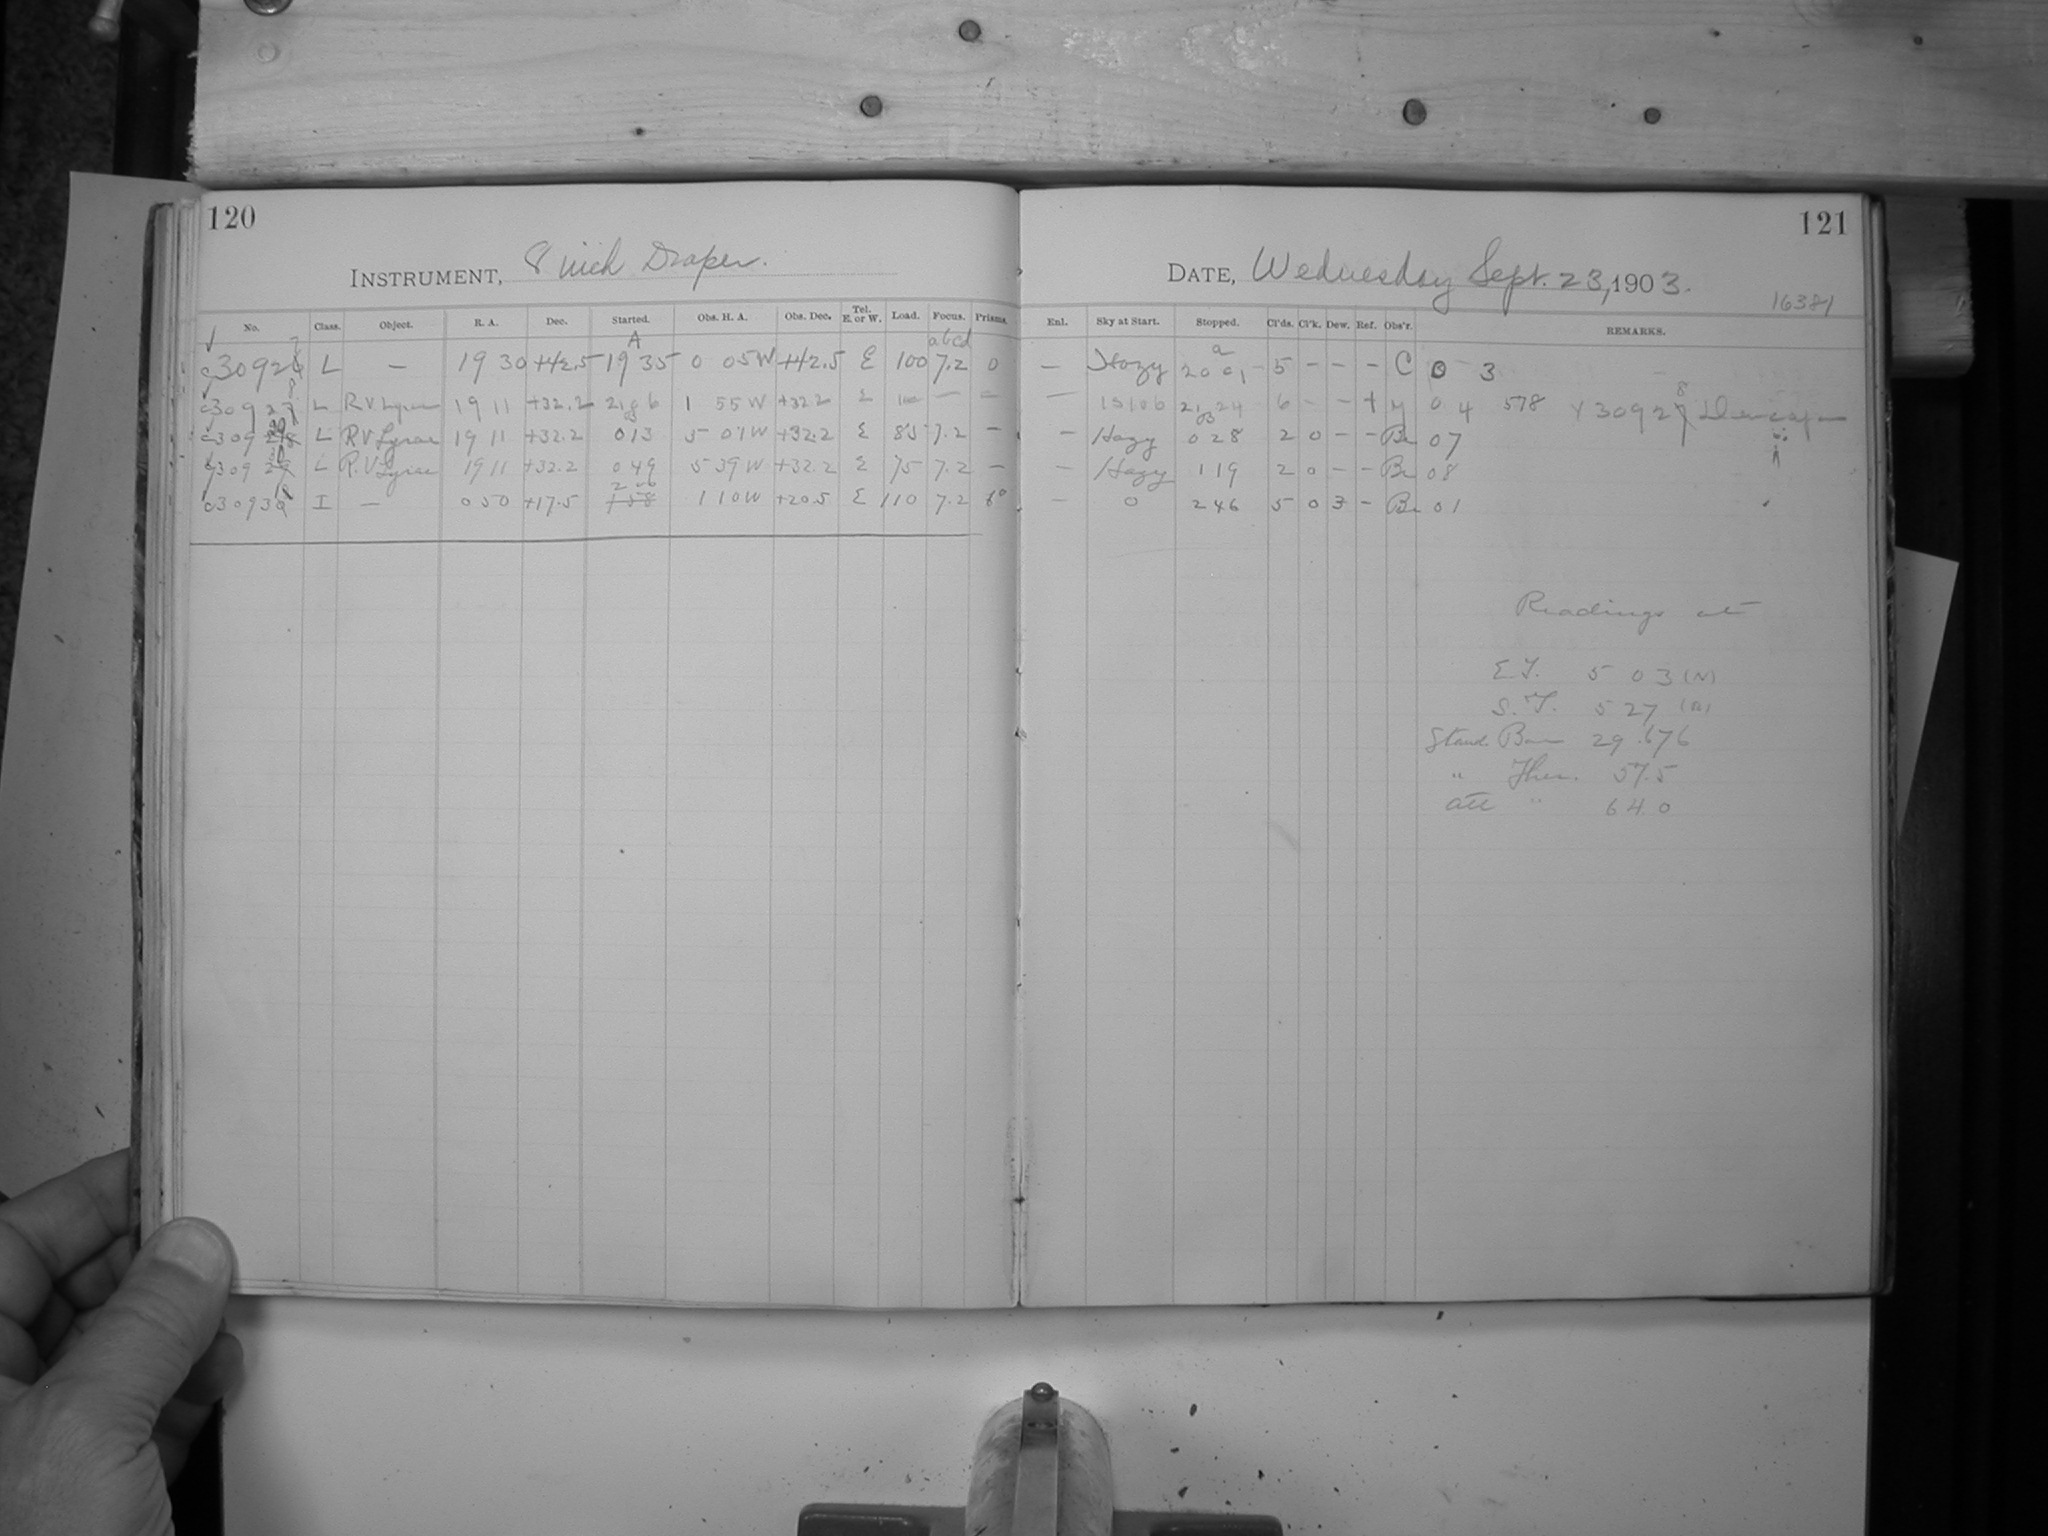 120
INSTRUMENT, 8 inch Draper.
No. Class. Object. R. A. Dec. Started. Obs. H. A. Obs. Dec. Tel. E. or W. Load. Focus. Prisms.
A abcd
L — 19 30 +42.5 19 35 0 05W +42.5 E 100 7.2 0
L RV Lyrae 19 11 +32.2 1 55W +32.2 E — —
L RV Lyrae 19 11 +32.2 0 13 5 01W +32.2 E 85 7.2 —
L R.V Lyrae 19 11 +32.2 0 49 5 39 W +32.2 E 75 7.2 —
I — 0 50 +17.5 1 10W +20.5 E 110 7.2
121
DATE, Wednesday Sept. 23, 1903.
16381
Enl. Sky at Start. Stopped. Cl'ds. Cl'k. Dew. Ref. Obs'r. REMARKS.
— Hazy 20 01 5 - - - C 0 3
— 21 24 6 - - 0 4 578
— Hazy 0 28 2 0 - - Be 07
— Hazy 1 19 2 0 - - Be 08
— 0 2 46 5 0 3 - Be 01
Readings at
E.T. 5 03 (N)
S.T. 5 27
Stand. Bar 29.676
" Ther. 57.5
att " 64.0